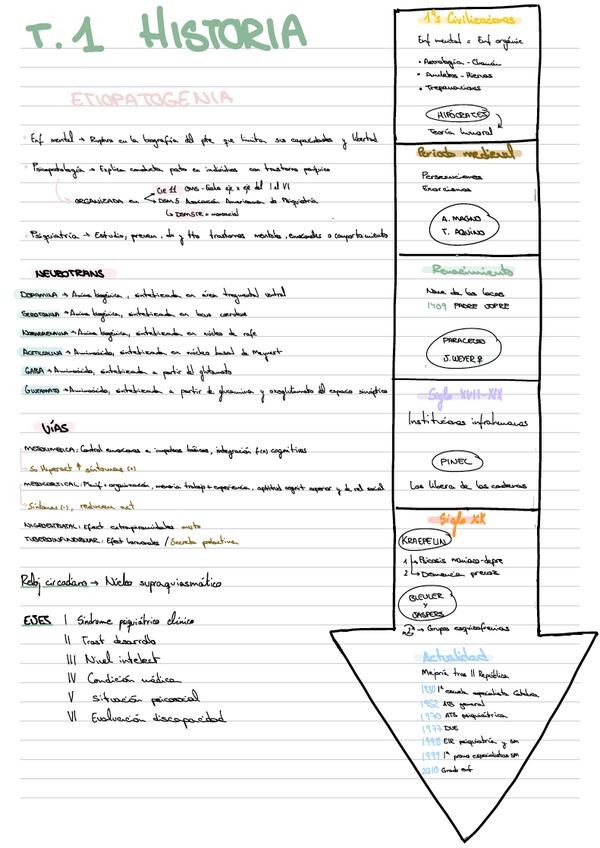 T.1 HISTORIA
ETIOPATOGENIA
Enf mental → Ruptura en la biografía del pte que limita sus capacidades y libertad
Psicopatología → Explica conducta pacte en individuos con trastorno psíquico
ORGANIZADA en
CIE 11 OMS - Evalúa eje x eje del I al VI
DSM 5 Asociación Americana de Psiquiatría
↳ DSM5TR =
Psiquiatría → Estudio, preven, dx y tto trastornos mentales, emocionales o comportamiento
NEUROTRANS
DOPAMINA → Amina biogénica, sintetizada en área tegmental ventral
SEROTONINA → Amina biogénica, sintetizada en
NORADRENALINA → Amina biogénica, sintetizada en núcleo de rafe
ACETILCOLINA → Aminoácido, sintetizada en núcleo basal de Meynert
GABA → Aminoácido, sintetizada a partir del glutamato
GLUTAMATO → Aminoácido, sintetizada a partir de glutamina y oxoglutamato del espacio sináptico
VÍAS
MESOLIMBICA: Control emociones e impulsos básicos, integración f(x) cognitivas
Si Hiperact ↑ síntomas (+)
MESOCORTICAL: Planif + organización, memoria trabajo + experiencia, aptitud cognit superior y de rel social
Síntomas (-), reducción act
NIGROESTRIATAL: Efect extrapiramidales
TUBEROINFUNDIBULAR: Efect hormonales / Secreta prolactina
Reloj circadiano → Núcleo supraquiasmático
EJES I Síndrome psiquiátrico clínico
II Trast desarrollo
III Nivel intelect
IV Condición médica
V Situación psicosocial
VI Evaluación discapacidad
1ªs Civilizaciones
Enf mental = Enf orgánic
• Astrología - Chamán
• Amuletos - Hierbas
• Trepanaciones
HIPÓCRATES
Teoría humoral
Periodo medieval
Persecuciones
Exorcismos
A. MAGNO
T. AQUINO
Renacimiento
Nave de los locos
1409 PADRE JOFRE
PARACELSO
J. WEYER
Siglo XVII-XIX
Instituciones infrahumanas
PINEL
Los libera de las cadenas
Siglo XX
KRAEPELIN
1 → Psicosis maniaco-depre
2 → Demencia precoz
BLEULER
y
JASPERS
→ Grupos esquizofrenias
Actualidad
Mejoría tras II República
1930 1ª escuela especialista Cataluña
1952 ATS general
1970 ATS psiquiátrica
1977 DUE
1998 EIR psiquiatría y sm
1999 1ª promo especialistas SM
2010 Grado enf